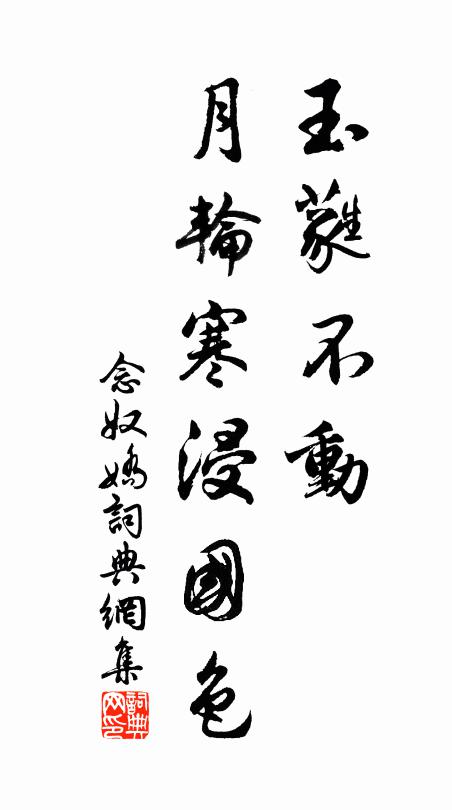 玉蕤不動
月輪寒浸國色
念奴嬌詞典網集
詞典網印